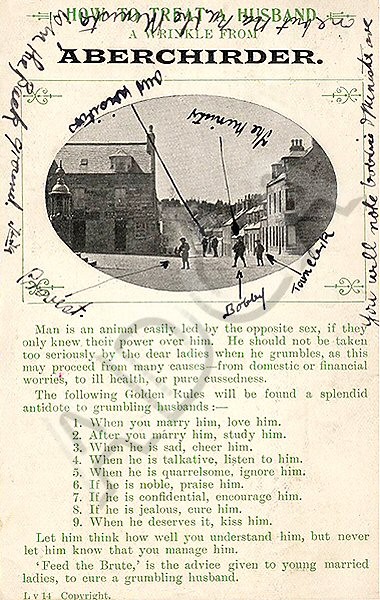 HOW TO TREAT A HUSBAND.
A WRINKLE FROM
ABERCHIRDER.
our
the minister
Bobby
Town clerk
You will note bobbies & Minister are
in the
ground
Man is an animal easily led by the opposite sex, if they
only knew their power over him. He should not be taken
too seriously by the dear ladies when he grumbles, as this
may proceed from many causes—from domestic or financial
worries, to ill health, or pure cussedness.
The following Golden Rules will be found a splendid
antidote to grumbling husbands :—
1. When you marry him, love him.
2. After you marry him, study him.
3. When he is sad, cheer him.
4. When he is talkative, listen to him.
5. When he is quarrelsome, ignore him.
6. If he is noble, praise him.
7. If he is confidential, encourage him.
8. If he is jealous, cure him.
9. When he deserves it, kiss him.
Let him think how well you understand him, but never
let him know that you manage him.
'Feed the Brute,' is the advice given to young married
ladies, to cure a grumbling husband.
L v 14 Copyright.